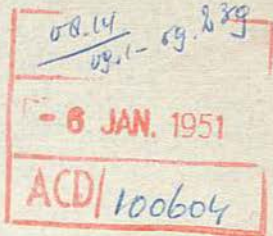 08.14
09.1- 69.239
- 6 JAN. 1951
ACD/100604